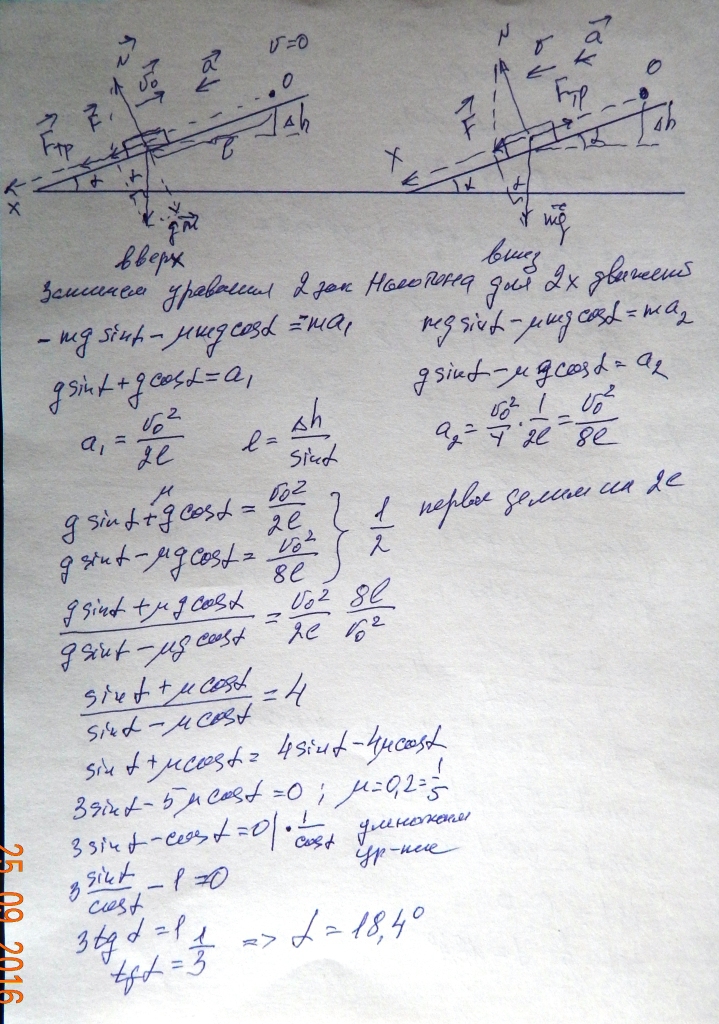 N v₀ a v=0
F F тр O
l Δh
α α X mg
вверх
N v a
F F тр O
X α α α Δh
mg
вниз
Запишем уравнения 2 зак Ньютона для 2х движений
-mg sinα - μmg cosα = -ma₁
mg sinα - μmg cosα = ma₂
g sinα + g cosα = a₁
g sinα - μg cosα = a₂
a₁ = v₀²/2l l = Δh/sinα
a₂ = v₀²/4 · 1/2l = v₀²/8l
g sinα + μg cosα = v₀²/2l
g sinα - μg cosα = v₀²/8l } 1/2 первое делим на 2е
(g sinα + μg cosα)/(g sinα - μg cosα) = v₀²/2l 8l/v₀²
(sinα + μcosα)/(sinα - μcosα) = 4
sinα + μcosα = 4sinα - 4μcosα
3sinα - 5μcosα = 0 ; μ=0,2=1/5
3sinα - cosα = 0 | · 1/cosα умножаем
ур-ние
3 sinα/cosα - 1 = 0
3tgα = 1
tgα = 1/3 => α = 18,4°
25 09 2016